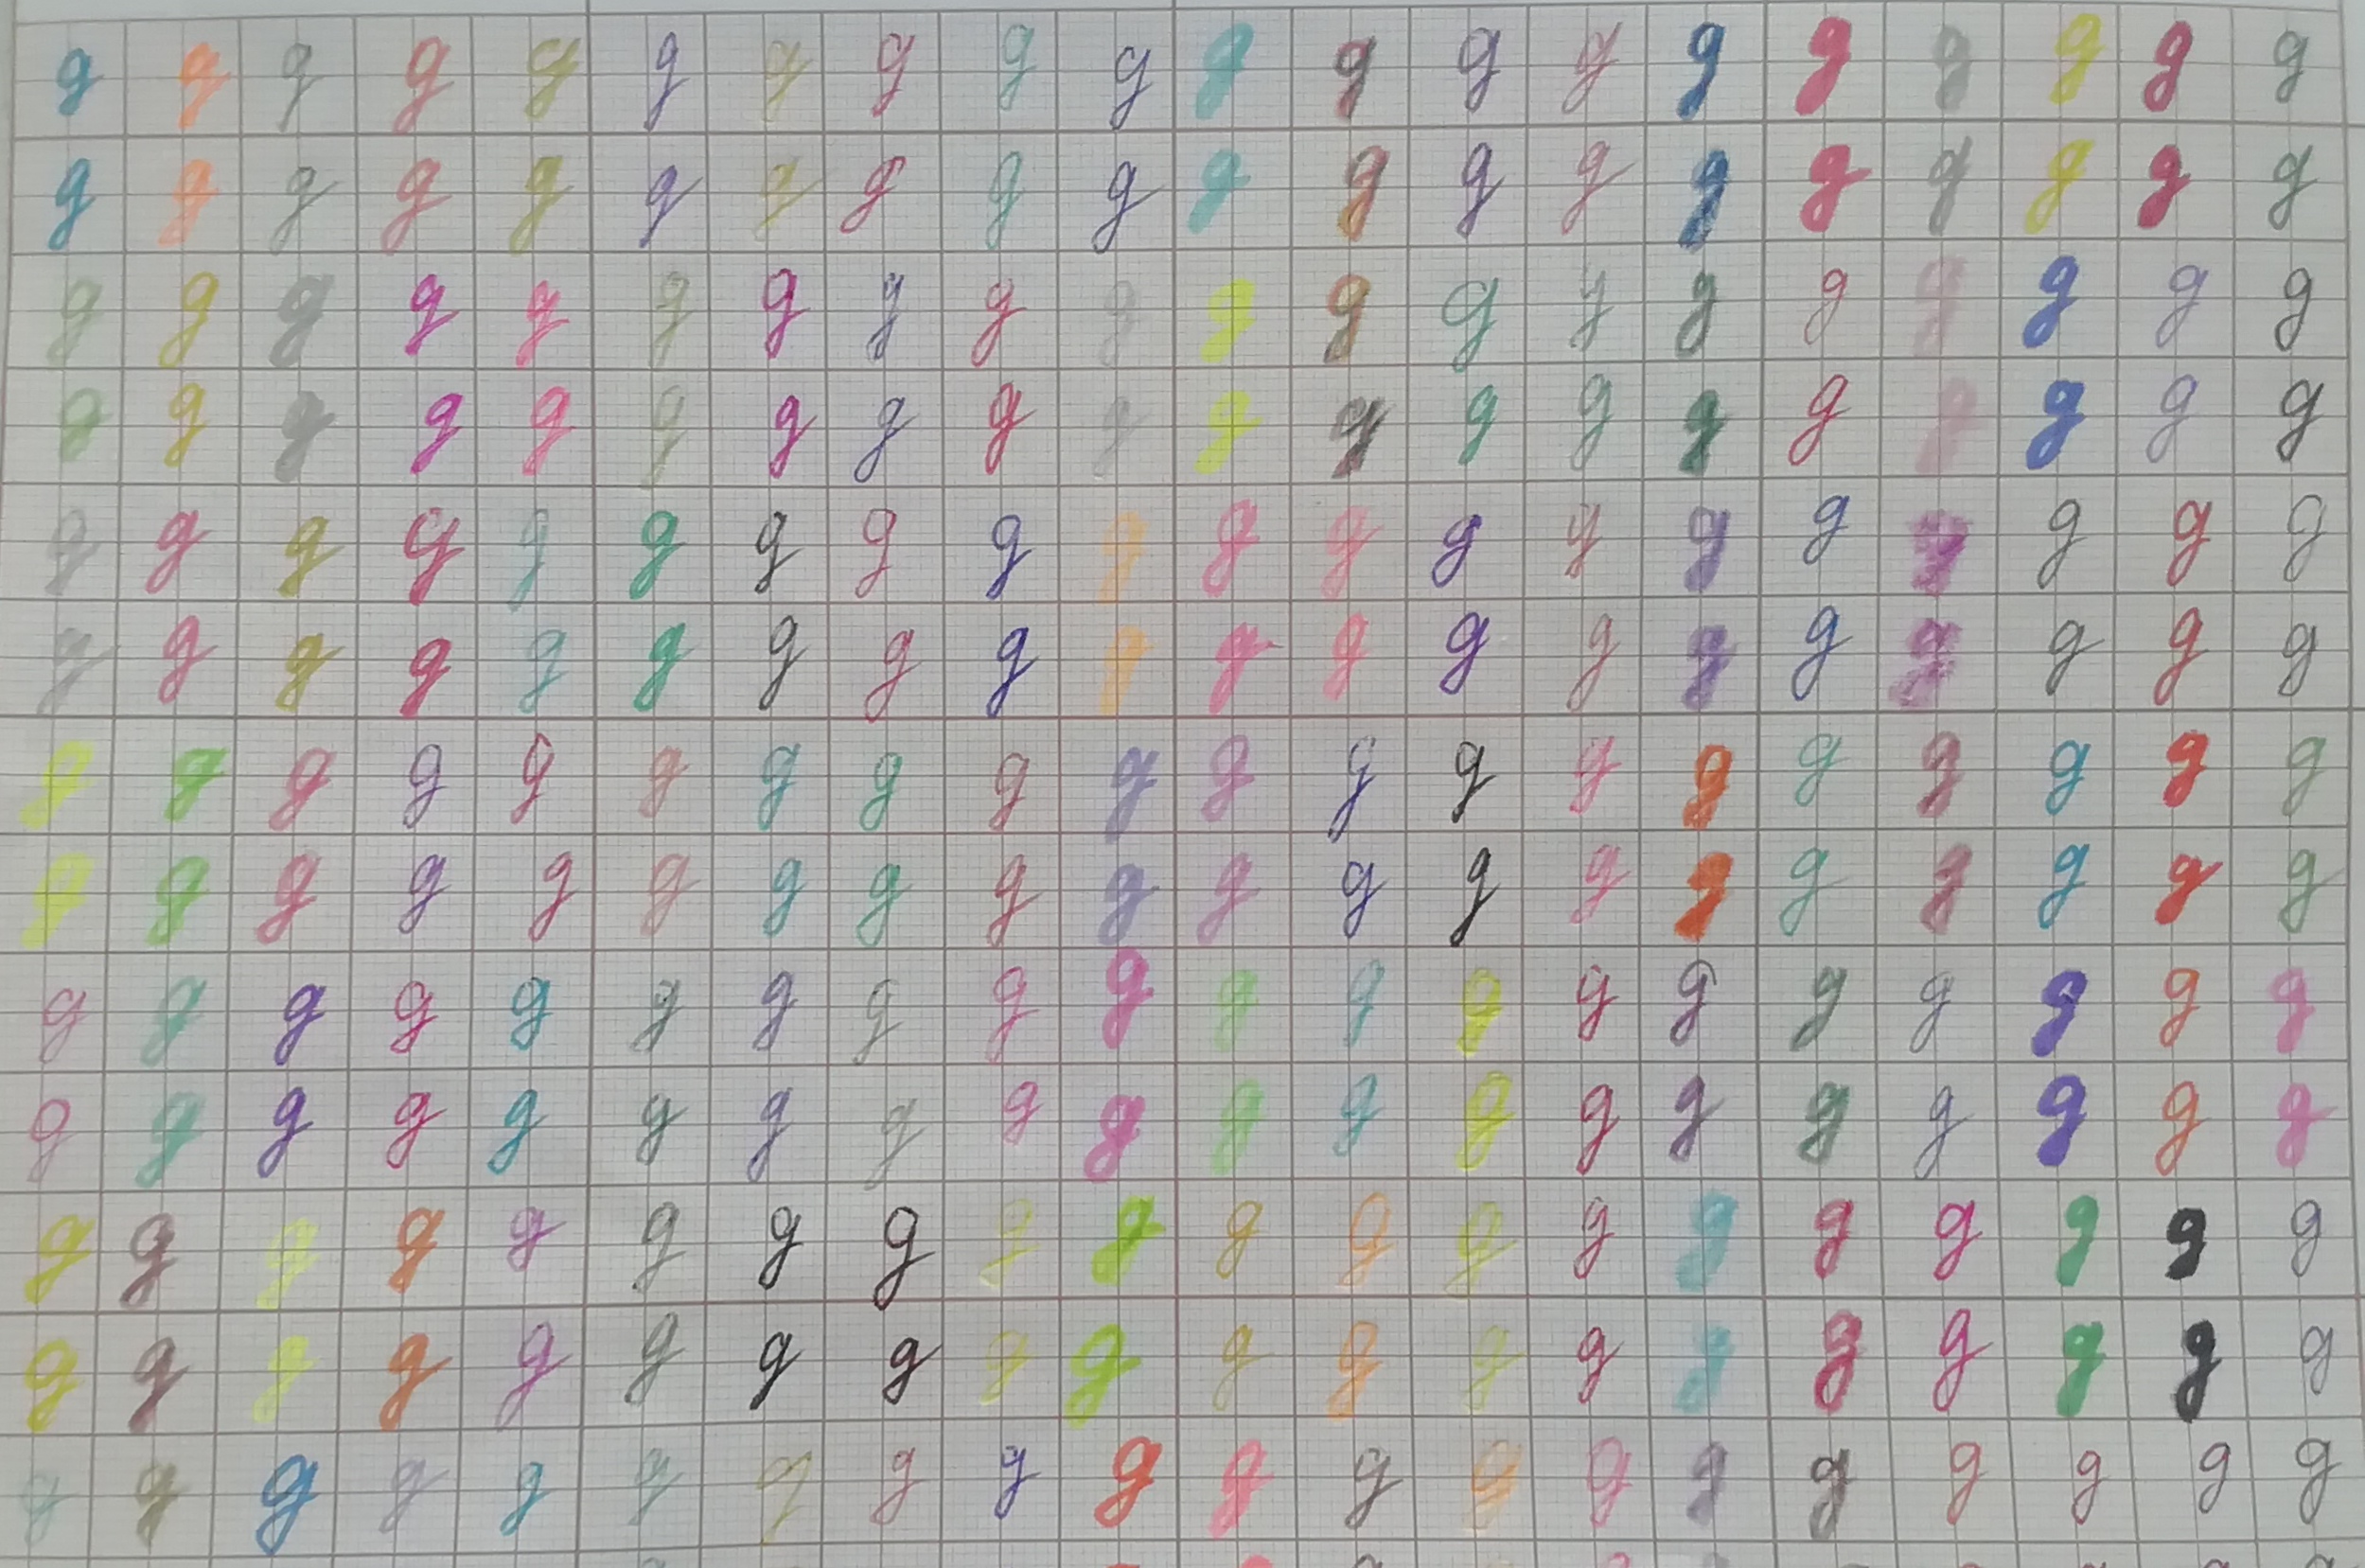 g g g g g g g g g g g g g g g g g g g g
g g g g g g g g g g g g g g g g g g g g
g g g g g g g g g g g g g g g g g g g g
g g g g g g g g g g g g g g g g g g g g
g g g g g g g g g g g g g g g g g g g g
g g g g g g g g g g g g g g g g g g g g
g g g g g g g g g g g g g g g g g g g g
g g g g g g g g g g g g g g g g g g g g
g g g g g g g g g g g g g g g g g g g g
g g g g g g g g g g g g g g g g g g g g
g g g g g g g g g g g g g g g g g g g g
g g g g g g g g g g g g g g g g g g g g
g g g g g g g g g g g g g g g g g g g g